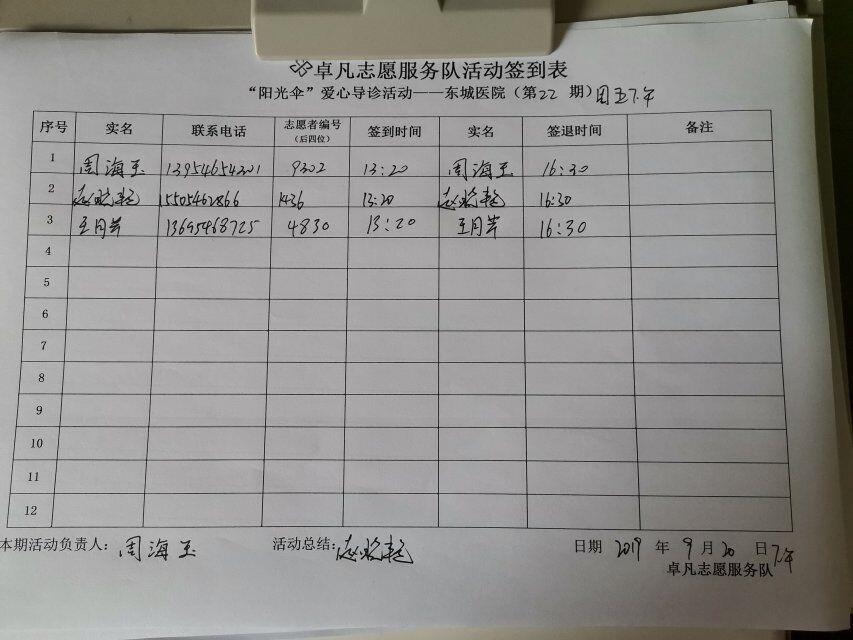 卓凡志愿服务队活动签到表
“阳光伞”爱心导诊活动——东城医院（第22 期）周五下午
序号 实名 联系电话 志愿者编号（后四位） 签到时间 实名 签退时间 备注
1 周海玉 13954654201 9302 13:20 周海玉 16:30
2 15505462866 1436 13:20 16:30
3 王月芹 13695468725 4830 13:20 王月芹 16:30
4
5
6
7
8
9
10
11
12
本期活动负责人：周海玉 活动总结： 日期 2019 年 9 月 20 日下午
卓凡志愿服务队